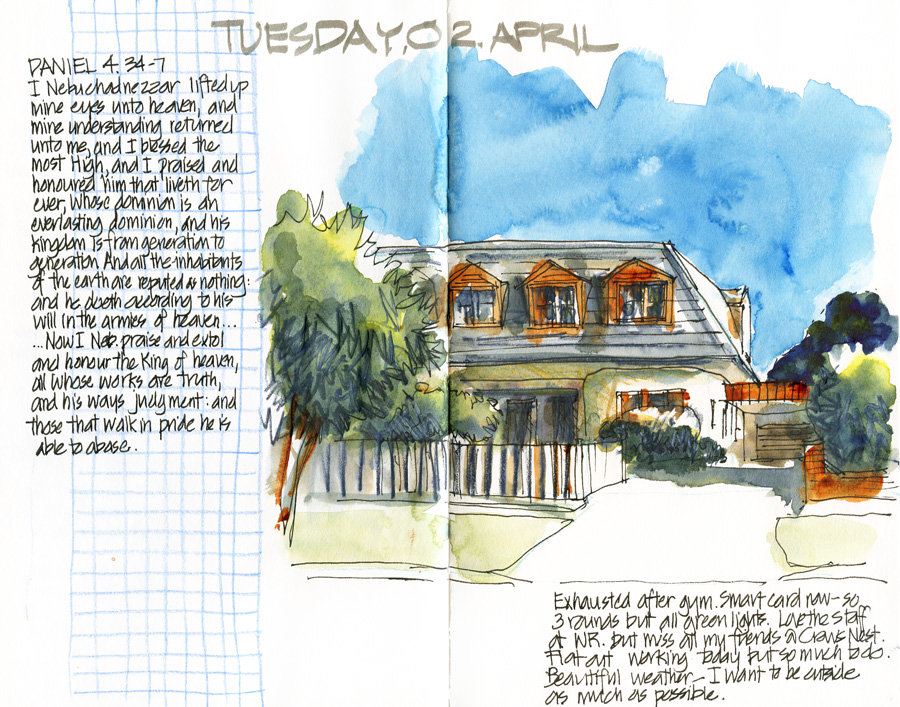 TUESDAY, 02. APRIL
DANIEL 4. 34-7
I Nebuchadnezzar lifted up
mine eyes unto heaven, and
mine understanding returned
unto me, and I blessed the
most High, and I praised and
honoured him that liveth for
ever, whose dominion is an
everlasting dominion, and his
kingdom is from generation to
generation. And all the inhabitants
of the earth are reputed as nothing:
and he doeth according to his
will in the armies of heaven...
...Now I Neb. praise and extol
and honour the King of heaven,
all whose works are truth,
and his ways judgment: and
those that walk in pride he is
able to abase.
Exhausted after gym. Smart card now - so
3 rounds but all green lights. Love the staff
at WR. but miss all my friends @ Crows Nest.
Flat out working today but so much to do.
Beautiful weather - I want to be outside
as much as possible.